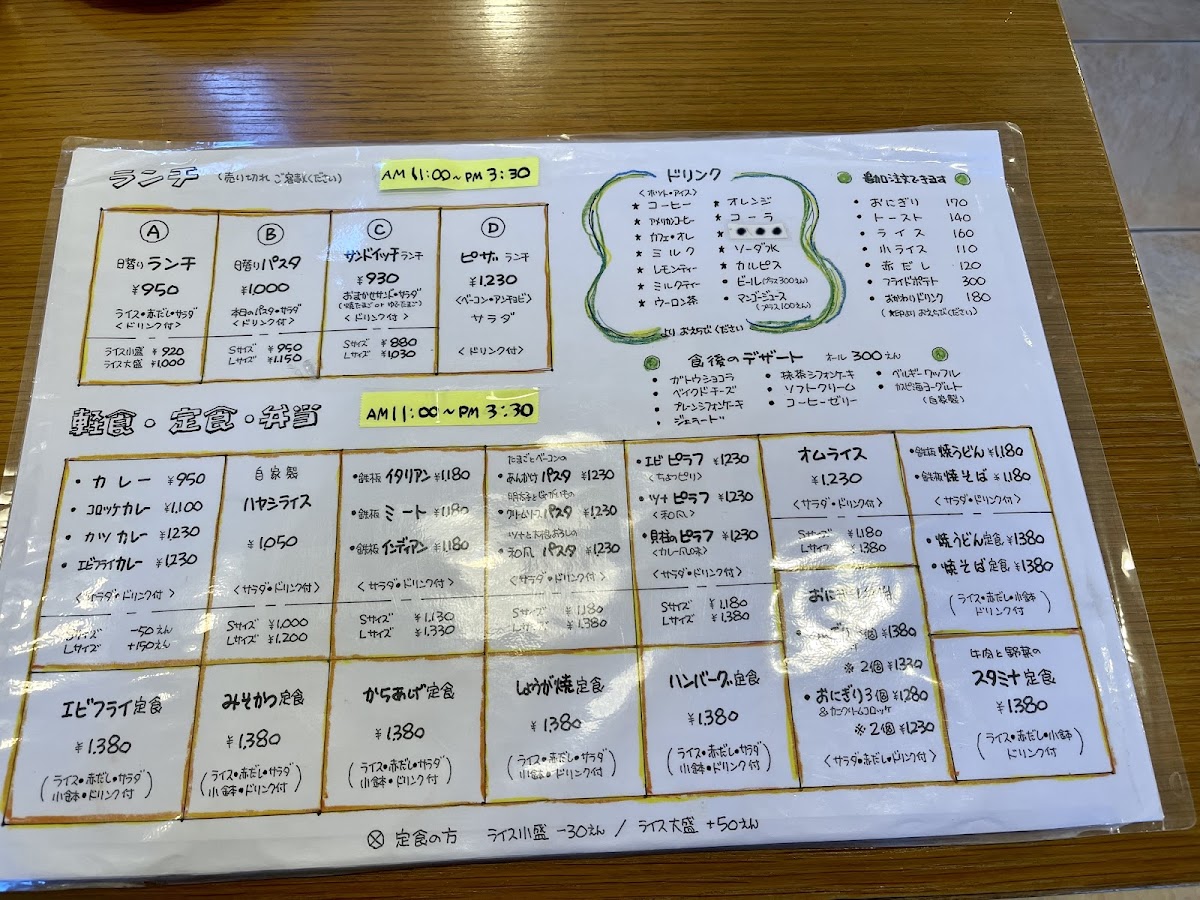 ランチ (売り切れ ご容赦ください) AM 11:00〜PM 3:30
Ⓐ
日替りランチ
¥950
ライス・赤だし・サラダ
〈ドリンク付〉
ライス小盛 ¥920
ライス大盛 ¥1,000
Ⓑ
日替りパスタ
¥1,000
本日のパスタ・サラダ
〈ドリンク付〉
Sサイズ ¥950
Lサイズ ¥1,150
Ⓒ
サンドイッチランチ
¥930
おまかせサンド・サラダ
(焼たまご or ゆでたまご)
〈ドリンク付〉
Sサイズ ¥880
Lサイズ ¥1,030
Ⓓ
ピザランチ
¥1,230
〈ベーコン・アンチョビ〉
サラダ
〈ドリンク付〉
ドリンク
〈ホット・アイス〉
★ コーヒー
★ アメリカンコーヒー
★ カフェ・オレ
★ ミルク
★ レモンティー
★ ミルクティー
★ ウーロン茶
★ オレンジ
★ コーラ
★ ●●●
★ ソーダ水
★ カルピス
★ ビール(プラス300えん)
★ マンゴージュース
(プラス100えん)
よりおえらびください
追加注文できます
・おにぎり 170
・トースト 140
・ライス 160
・小ライス 110
・赤だし 120
・フライドポテト 300
・おかわりドリンク 180
(★印よりおえらびください)
食後のデザート オール300えん
・ガトウショコラ
・ベイクドチーズ
・プレーンシフォンケーキ
・ジェラード
・抹茶シフォンケーキ
・ソフトクリーム
・コーヒーゼリー
・ベルギーワッフル
・カスピ海ヨーグルト
(自家製)
軽食・定食・弁当 AM 11:00〜PM 3:30
・カレー ¥950
・コロッケカレー ¥1,100
・カツカレー ¥1,230
・エビフライカレー ¥1,230
〈サラダ・ドリンク付〉
Sサイズ −50えん
Lサイズ +150えん
自家製
ハヤシライス
¥1,050
〈サラダ・ドリンク付〉
Sサイズ ¥1,000
Lサイズ ¥1,200
・鉄板 イタリアン ¥1,180
・鉄板 ミート ¥1,180
・鉄板 インディアン ¥1,180
〈サラダ・ドリンク付〉
Sサイズ ¥1,130
Lサイズ ¥1,330
たまごとベーコンの
・あんかけパスタ ¥1230
明太子とじゃがいもの
・クリームソースパスタ ¥1,230
ツナと大根おろしの
・和風パスタ ¥1230
〈サラダ・ドリンク付〉
Sサイズ ¥1,180
Lサイズ ¥1,380
・エビピラフ ¥1230
〈ちょっピリ〉
・ツナピラフ ¥1230
〈和風〉
・貝柱のピラフ ¥1230
〈カレー風の味〉
〈サラダ・ドリンク付〉
Sサイズ ¥1,180
Lサイズ ¥1,380
オムライス
¥1,230
〈サラダ・ドリンク付〉
Sサイズ ¥1,180
Lサイズ ¥1380
・鉄板 焼うどん ¥1,180
・鉄板 焼そば ¥1,180
〈サラダ・ドリンク付〉
・焼うどん定食 ¥1380
・焼そば定食 ¥1380
(ライス・赤だし・小鉢
ドリンク付)
3個 ¥1380
※2個 ¥1330
・おにぎり3個 ¥1280
&カニクリームコロッケ
※2個 ¥1230
〈サラダ・赤だし・ドリンク付〉
エビフライ定食
¥1,380
(ライス・赤だし・サラダ
小鉢・ドリンク付)
みそかつ定食
¥1,380
(ライス・赤だし・サラダ
小鉢・ドリンク付)
からあげ定食
¥1,380
(ライス・赤だし・サラダ
小鉢・ドリンク付)
しょうが焼定食
¥1,380
(ライス・赤だし・サラダ
小鉢・ドリンク付)
ハンバーグ定食
¥1,380
(ライス・赤だし・サラダ
小鉢・ドリンク付)
牛肉と野菜の
スタミナ定食
¥1380
(ライス・赤だし・小鉢
ドリンク付)
⊗ 定食の方 ライス小盛 −30えん / ライス大盛 +50えん